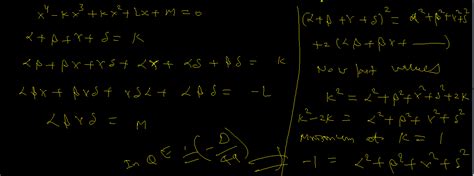 x⁴-kx³+kx²+Lx+M=0
α+β+γ+δ = K
αβ+βγ+γδ+αγ+αδ+βδ = K
αβγ+βγδ+γδα+αβδ = -L
αβγδ = M
In Q E = (-D/4a)
(α+β+γ+δ)² = α²+β²+γ²+δ²
+2(αβ+βγ+——)
Now put values
K² = α²+β²+γ²+δ²+2K
K²-2K = α²+β²+γ²+δ²
Minimum at K = 1
-1 = α²+β²+γ²+δ²